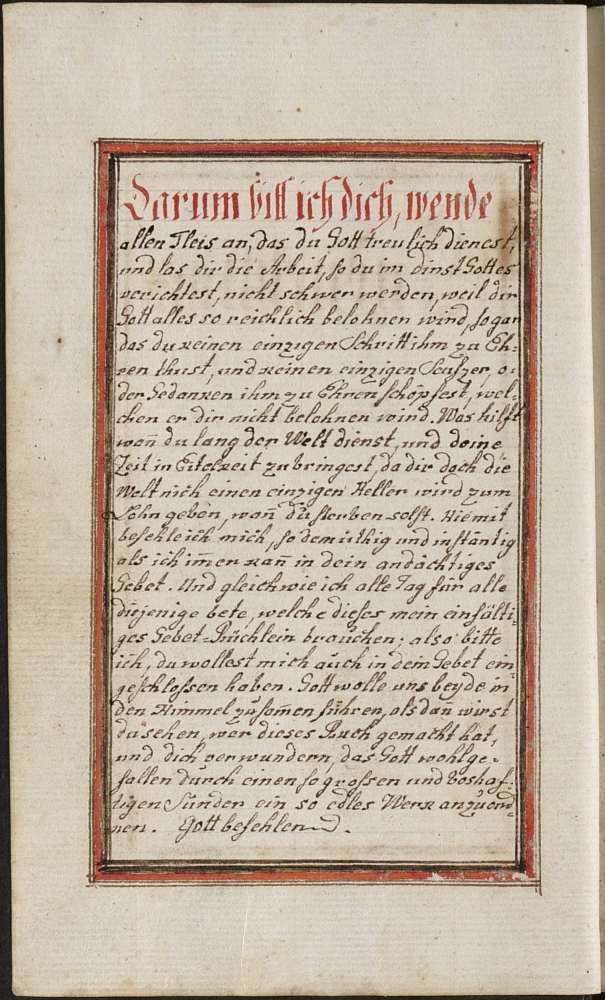 Darum bitt ich dich, wende
allen Fleis an, das du Gott treulich dienest,
und las dir die Arbeit, so du im dinst Gottes
verichtest, nicht schwer werden, weil dir
Gott alles so reichlich belohnen wird, sogar
das du keinen einzigen Schritt ihm zu Eh=
ren thust, und keinen einzigen Seufzer, o=
der Gedanken ihm zu Ehren schöpfest, wel=
chen er dir nicht belohnen wird. Was hilfft
wañ du lang der Welt dienst, und deine
Zeit in Eitelkeit zubringest, da dir doch die
Welt nich einen einzigen Heller wird zum
Lohn geben, wañ du sterben solst. Hiemit
befehle ich mich, so demüthig und inständig
als ich im̄er kañ in dein andächtiges
Gebet. Und gleichwie ich alle Tag für alle
diejenige bete, welche dieses mein einfälti=
ges Gebet=Büchlein brauchen; also bitte
ich, du wollest mich auch in dein Gebet ein=
geschlossen haben. Gott wolle uns beyde in
den Himmel zusam̄en führen, als dañ wirst
du sehen, wer dieses Buch gemacht hat,
und dich verwundern, das Gott wohlge=
fallen durch einen so grossen und boshaf=
tigen Sünder ein so edles Werk anzuord=
nen. Gott befehlend.